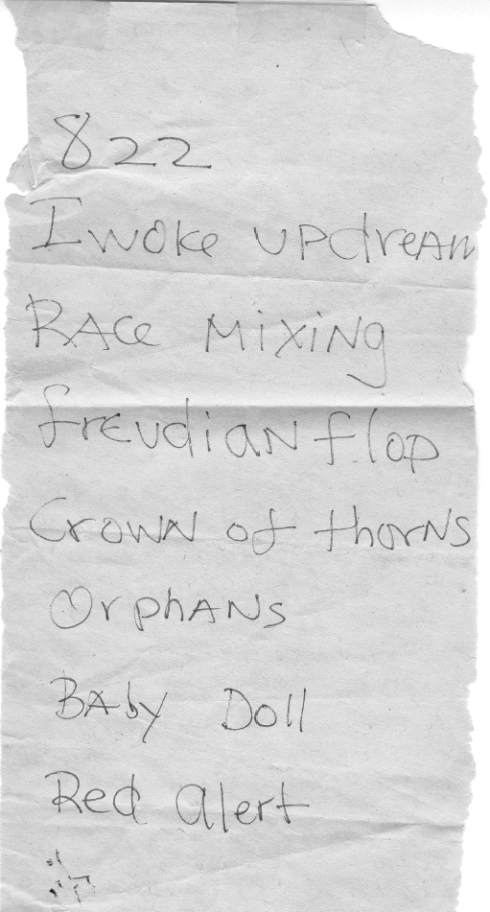 822
I woke up dream
RACe MixiNg
freudiAN flop
CrowN of thorNs
OrphANs
BAby Doll
Red alert